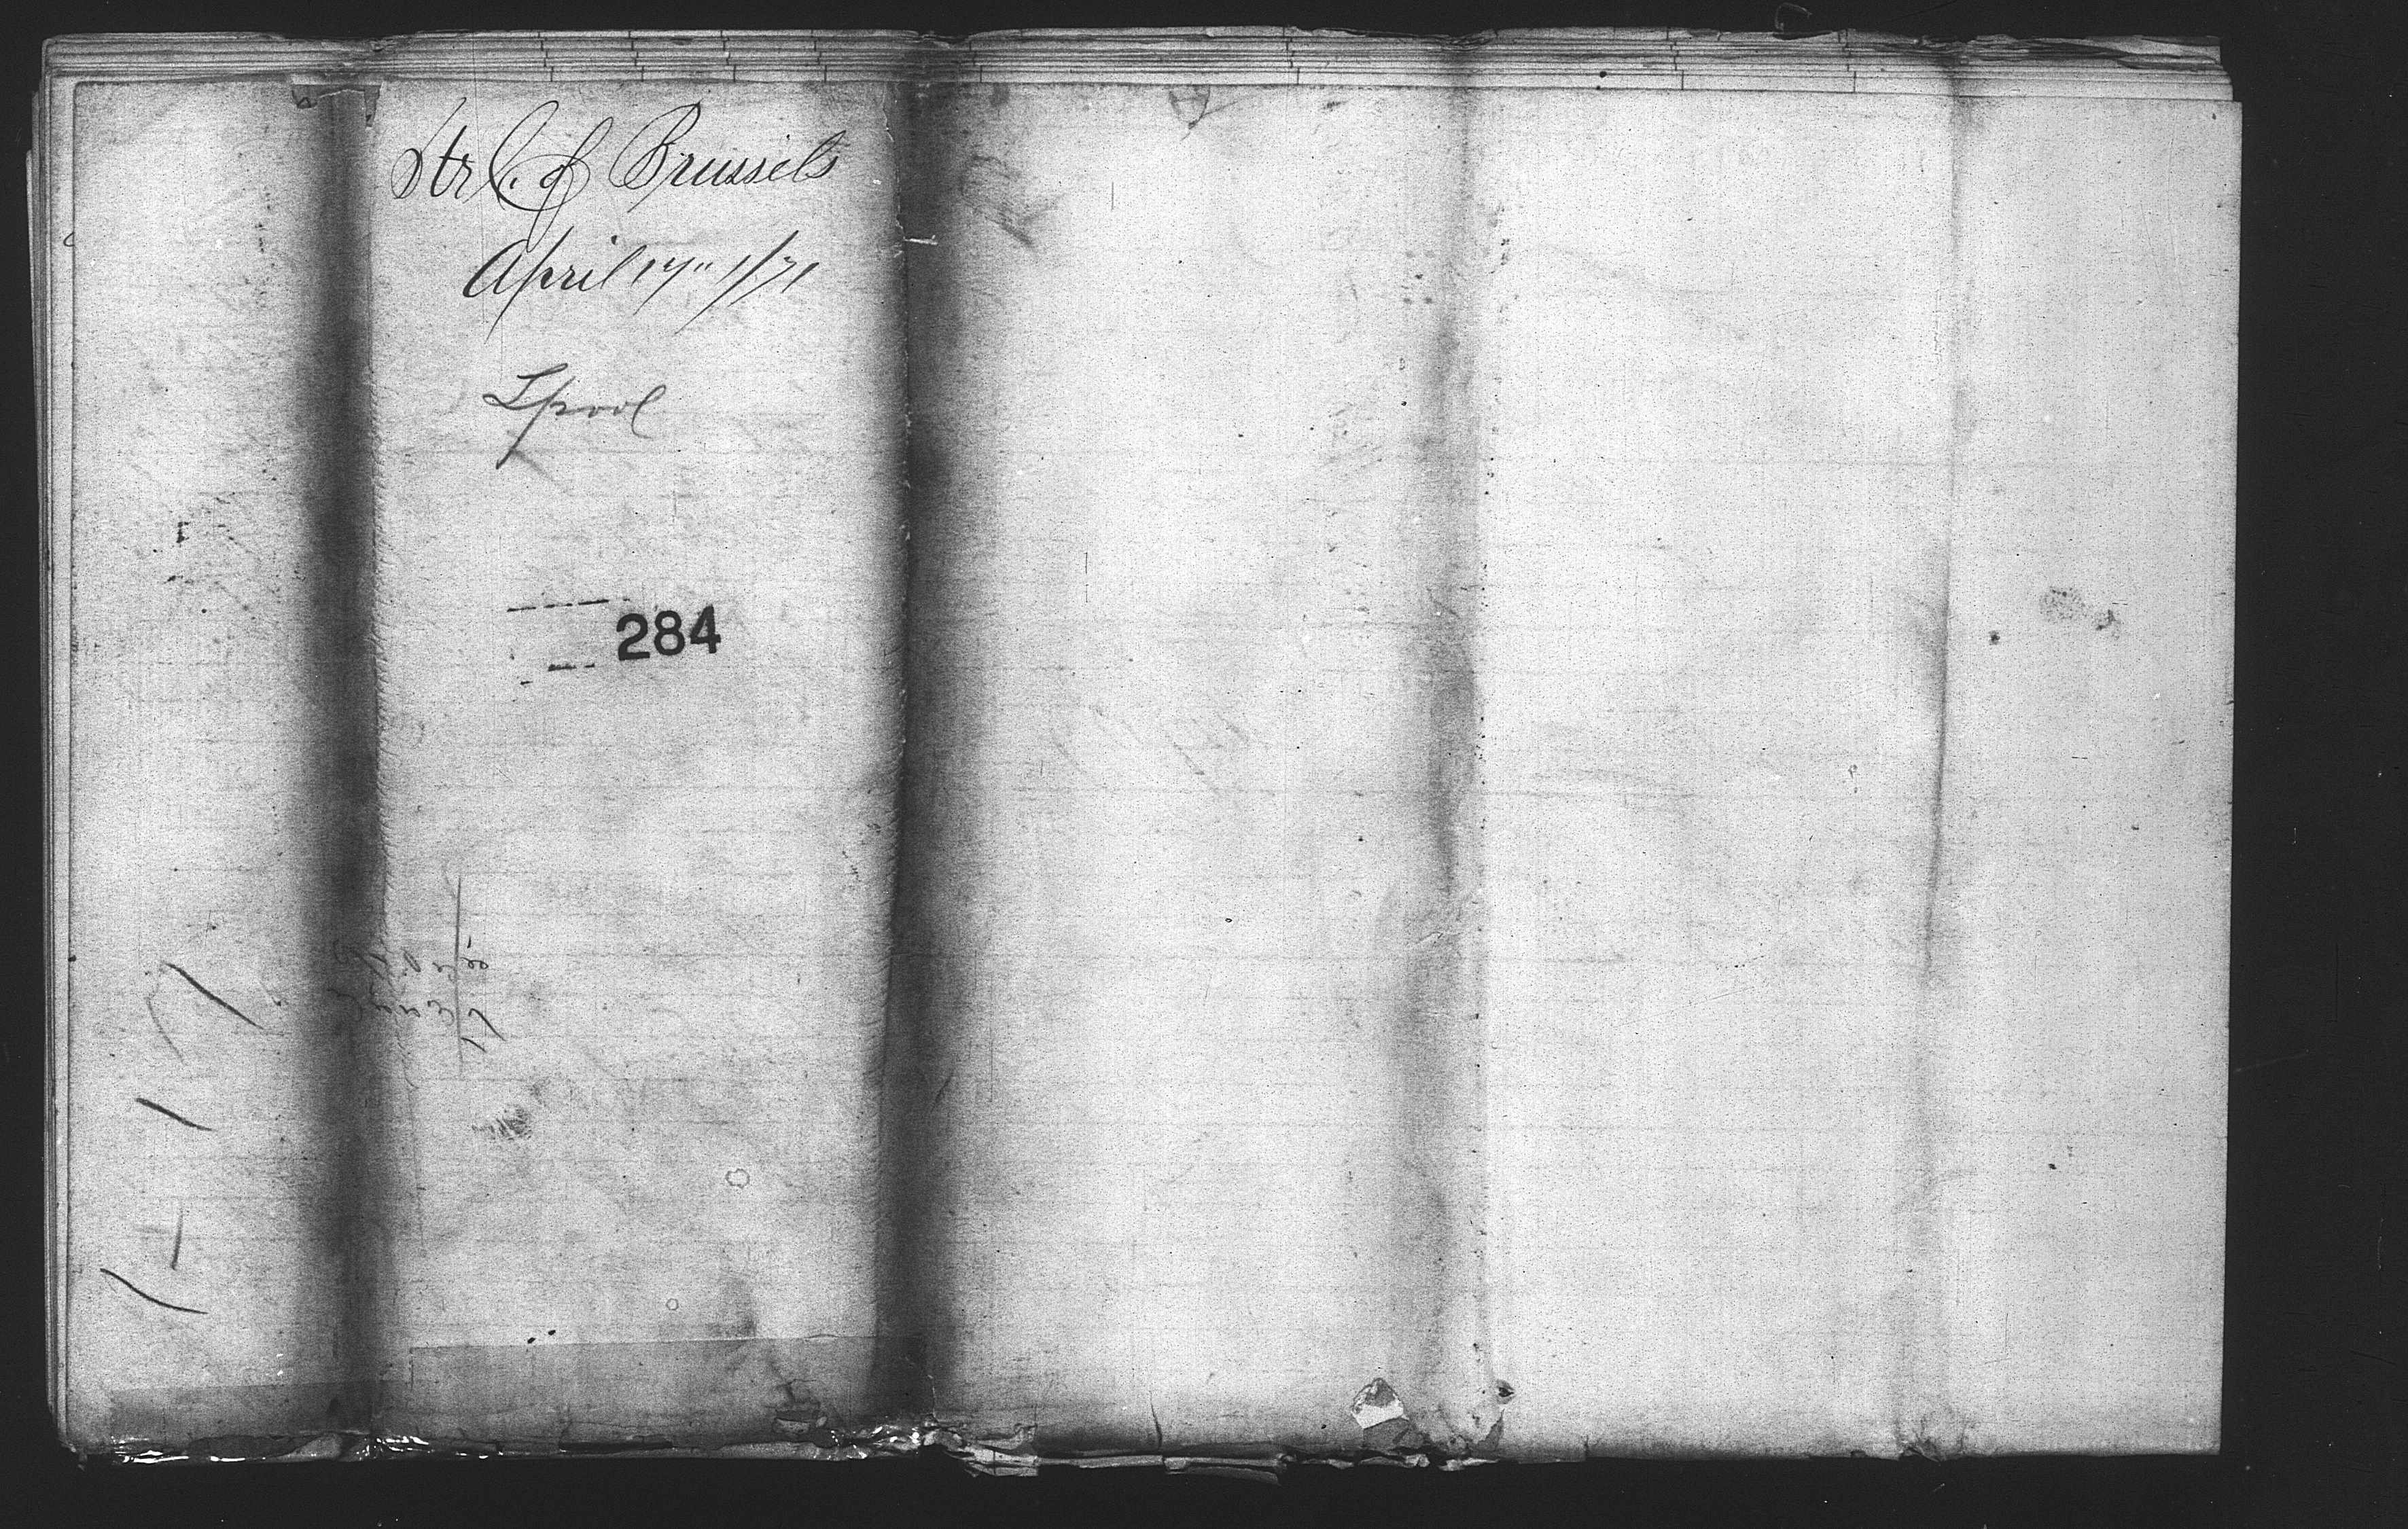 Str C. of Brussels
April 17" 1/71
Lpool
284
17